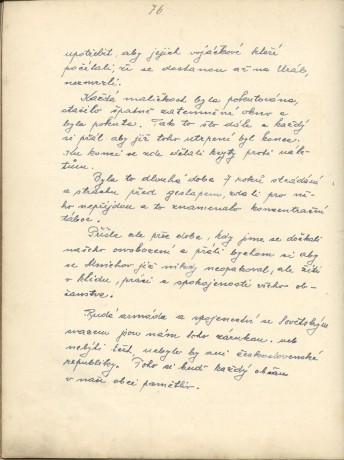 76
upotřebit, aby jejich vojáčkové kteří
počítali, že se dostanou až na Ural,
nezmrzli.
Každá maličkost byla pokutována,
stačilo špatně zatemněné okno a
byla pokuta. Tak to šlo dále a každý
si přál aby již toho utrpení byl konec.
Ku konci se zde dělali kryty proti nále-
tům.
Byla to dlouhá doba 7 roků strádání
a strachu před gestapem, zda li pro ně-
ho nepřijdou a to znamenalo koncentrační
tábor.
Přišla ale přec doba, kdy jsme se dočkali
našeho osvobození a přáli bychom si aby
se Mnichov již nikdy neopakoval, ale žíti
v klidu, práci a spokojenosti všeho ob-
čanstva.
Rudá armáda a spojenectví se Sovětským
svazem jsou nám toho zárukou. neb
nebýti jich, nebylo by ani československé
republiky. Toho si buď každý občan
v naší obci pamětliv.